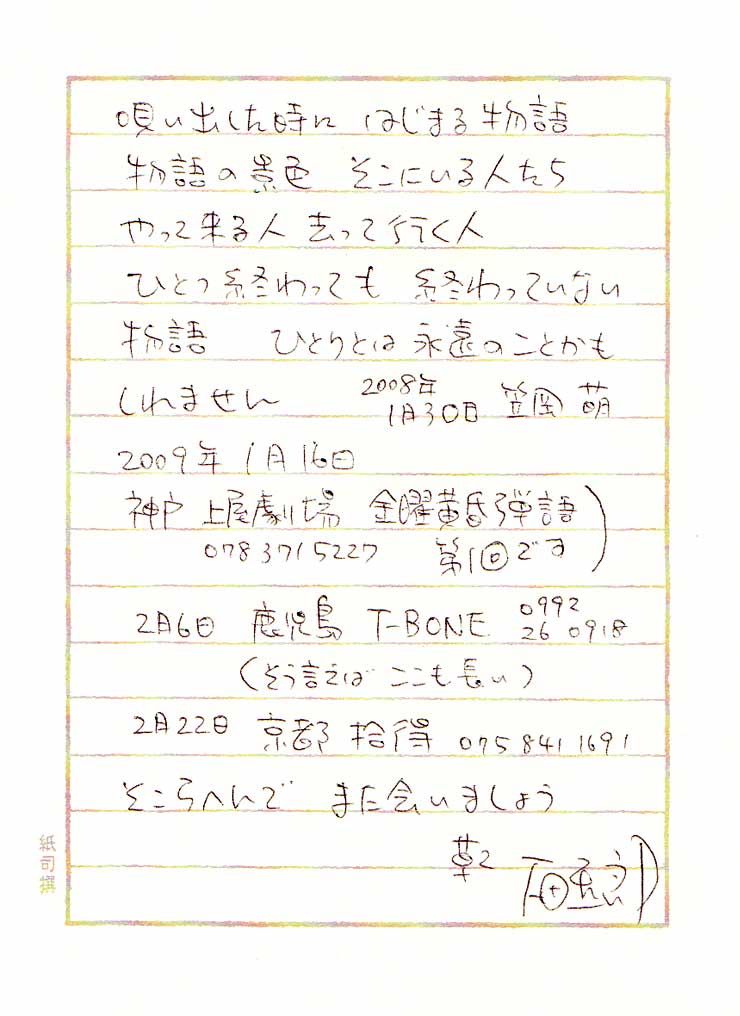 唄い出した時に はじまる物語
物語の景色 そこにいる人たち
やって来る人 去って行く人
ひとつ終わっても 終わっていない
物語 ひとりとは永遠のことかも
しれません 2008年 1月30日 笠岡 萌
2009年 1月16日
神戸 上屋劇場 金曜黄昏弾語
078 371 5227 第1回です
2月6日 鹿児島 T-BONE 0992 26 0918
(そう言えば ここも長い)
2月22日 京都 拾得 075 841 1691
そこらへんで また会いましょう
草々
紙司撰